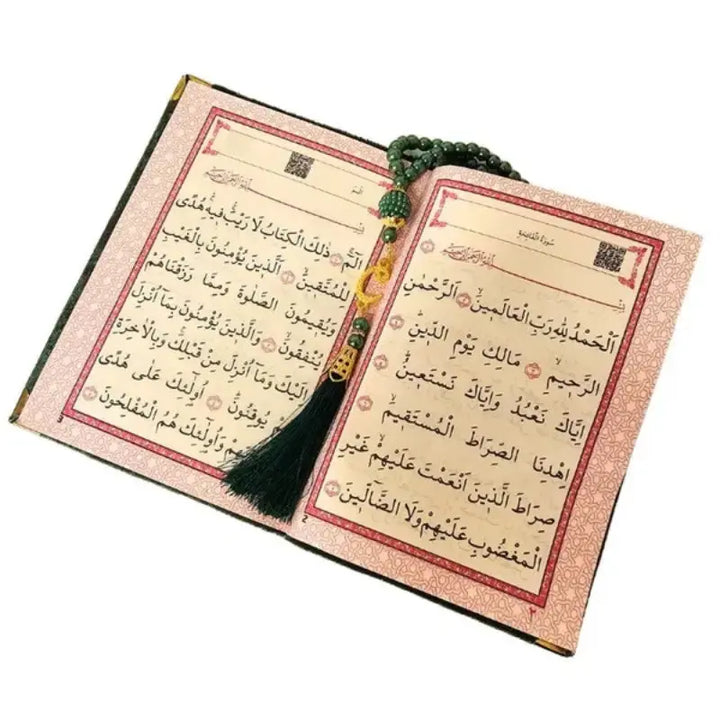 سورة الفاتحة
اَلْحَمْدُ لِلّٰهِ رَبِّ الْعَالَمٖينَۙ ﴿٢﴾ اَلرَّحْمٰنِ
الرَّحٖيمِۙ ﴿٣﴾ مَالِكِ يَوْمِ الدّٖينِۜ ﴿٤﴾
اِيَّاكَ نَعْبُدُ وَاِيَّاكَ نَسْتَعٖينُۜ ﴿٥﴾
اِهْدِنَا الصِّرَاطَ الْمُسْتَقٖيمَۙ ﴿٦﴾
صِرَاطَ الَّذٖينَ اَنْعَمْتَ عَلَيْهِمْۙ غَيْرِ
الْمَغْضُوبِ عَلَيْهِمْ وَلَا الضَّٓالّٖينَ
٢
2
الٓمٓۚ ذٰلِكَ الْكِتَابُ لَا رَيْبَۚ فٖيهِۚ هُدًى
لِلْمُتَّقٖينَۙ اَلَّذٖينَ يُؤْمِنُونَ بِالْغَيْبِ
وَيُقٖيمُونَ الصَّلٰوةَ وَمِمَّا رَزَقْنَاهُمْ
يُنْفِقُونَۙ وَالَّذٖينَ يُؤْمِنُونَ بِمَٓا اُنْزِلَ
اِلَيْكَ وَمَٓا اُنْزِلَ مِنْ قَبْلِكَۚ وَبِالْاٰخِرَةِ
يُوقِنُونَۜ اُو۬لٰٓئِكَ عَلٰى هُدًى
وَاُو۬لٰٓئِكَ هُمُ الْمُفْلِحُونَ